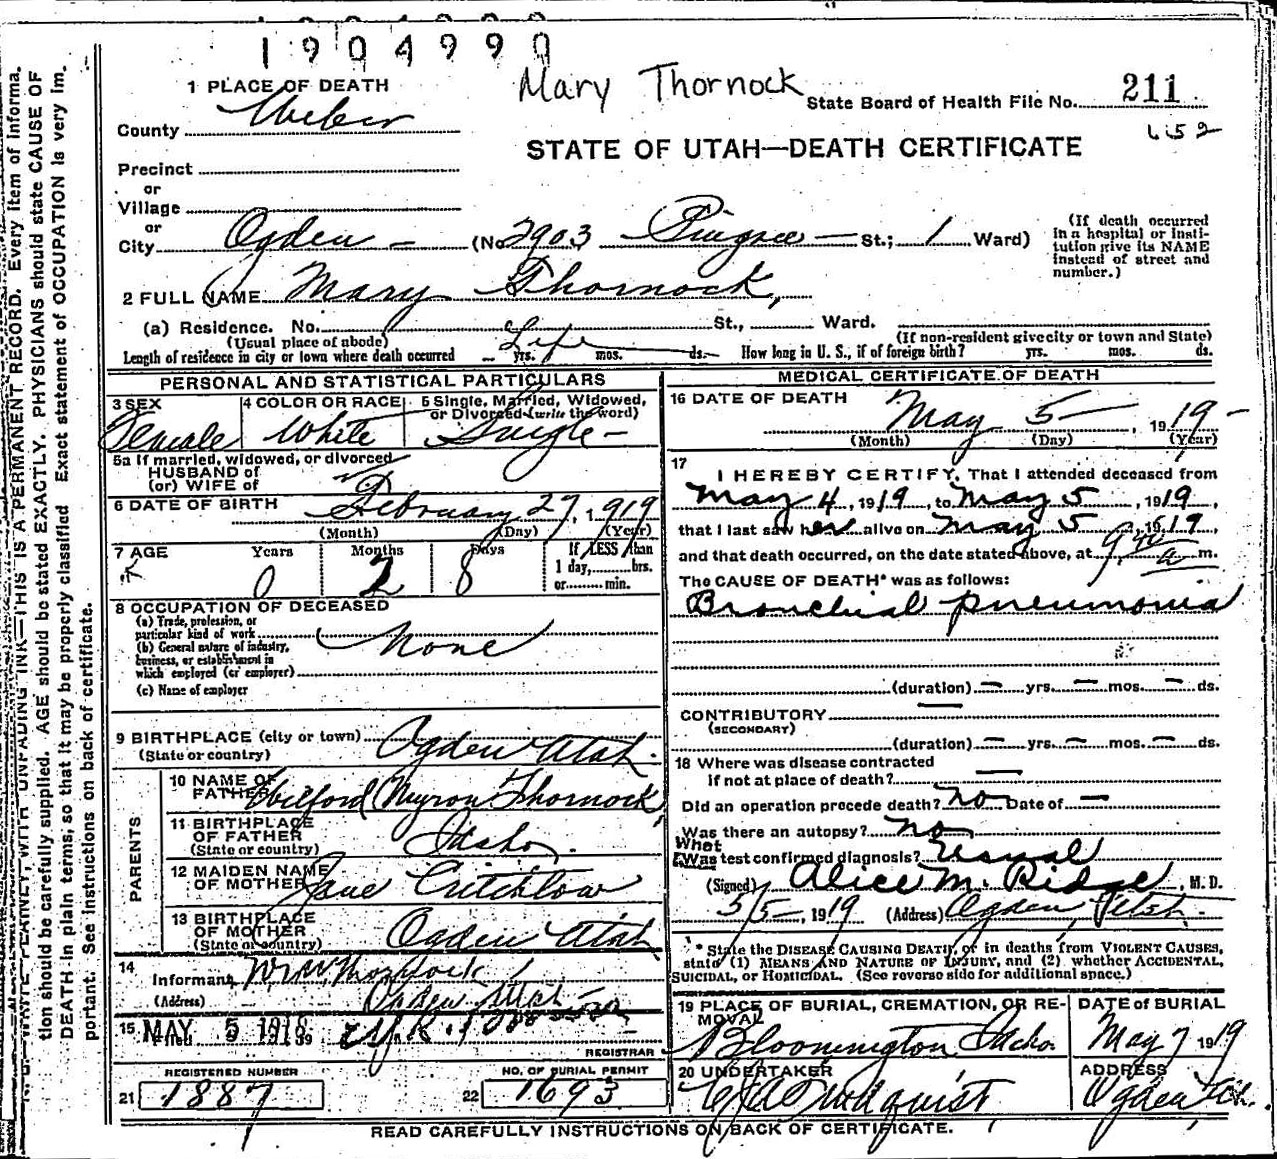 1904990
1 PLACE OF DEATH
Mary Thornock
State Board of Health File No. 211
County Weber
652
STATE OF UTAH—DEATH CERTIFICATE
Precinct
or
Village
or
City Ogden (No 2903 Pingree St.; 1 Ward)
(If death occurred in a hospital or institution give its NAME instead of street and number.)
2 FULL NAME Mary Thornock,
(a) Residence. No. St., Ward.
(Usual place of abode) (If non-resident give city or town and State)
Length of residence in city or town where death occurred Life yrs. mos. ds. How long in U. S., if of foreign birth? yrs. mos. ds.
PERSONAL AND STATISTICAL PARTICULARS
3 SEX Female
4 COLOR OR RACE White
5 Single, Married, Widowed, or Divorced (write the word) Single
5a If married, widowed, or divorced
HUSBAND of
(or) WIFE of
6 DATE OF BIRTH February 27, 1919
(Month) (Day) (Year)
7 AGE Years Months Days If LESS than
0 2 8 1 day, hrs.
or min.
8 OCCUPATION OF DECEASED
(a) Trade, profession, or
particular kind of work None
(b) General nature of industry,
business, or establishment in
which employed (or employer)
(c) Name of employer
9 BIRTHPLACE (city or town) Ogden Utah.
(State or country)
PARENTS
10 NAME OF FATHER Wilford Myron Thornock
11 BIRTHPLACE OF FATHER Idaho.
(State or country)
12 MAIDEN NAME OF MOTHER Jane Critchlow
13 BIRTHPLACE OF MOTHER Ogden Utah
(State or country)
14
Informant W M Thornock
(Address) Ogden Utah
15 Filed MAY 5 1919
REGISTRAR
REGISTERED NUMBER
21 1887
NO. OF BURIAL PERMIT
22 1693
MEDICAL CERTIFICATE OF DEATH
16 DATE OF DEATH May 5 , 1919
(Month) (Day) (Year)
17
I HEREBY CERTIFY, That I attended deceased from
May 4, 1919, to May 5, 1919,
that I last saw her alive on May 5, 1919,
and that death occurred, on the date stated above, at 9 a m.
The CAUSE OF DEATH* was as follows:
Bronchial pneumonia
(duration) — yrs. — mos. — ds.
CONTRIBUTORY —
(SECONDARY)
(duration) — yrs. — mos. — ds.
18 Where was disease contracted
if not at place of death? —
Did an operation precede death? no Date of —
Was there an autopsy? no
What
Was test confirmed diagnosis? usual
(Signed) Alice M. Ridge, M. D.
5/5—, 1919 (Address) Ogden, Utah.
* State the DISEASE CAUSING DEATH, or in deaths from VIOLENT CAUSES,
state (1) MEANS AND NATURE OF INJURY, and (2) whether ACCIDENTAL,
SUICIDAL, or HOMICIDAL. (See reverse side for additional space.)
19 PLACE OF BURIAL, CREMATION, OR REMOVAL
Bloomington Idaho.
DATE of BURIAL
May 7 1919
20 UNDERTAKER
Lindquist
ADDRESS
Ogden Utah.
READ CAREFULLY INSTRUCTIONS ON BACK OF CERTIFICATE.
N. B.—WRITE PLAINLY, WITH UNFADING INK—THIS IS A PERMANENT RECORD. Every item of informa-
tion should be carefully supplied. AGE should be stated EXACTLY. PHYSICIANS should state CAUSE OF
DEATH in plain terms, so that it may be properly classified. Exact statement of OCCUPATION is very im-
portant. See instructions on back of certificate.